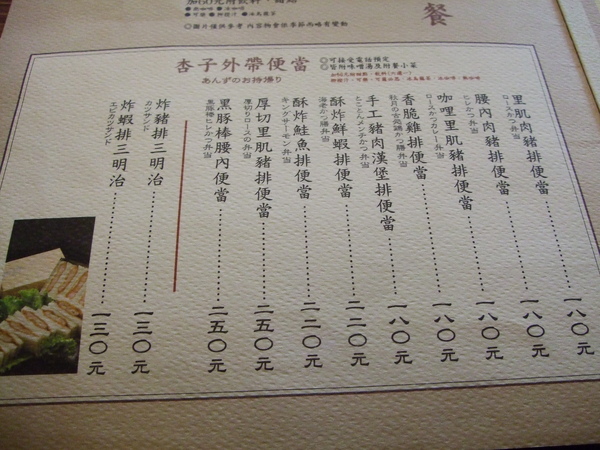 餐
加60元附飲料、甜點
◎圖片僅供參考 內容物會依季節而略有變動
杏子外帶便當
あんずのお持帰り
◎可接受電話預定
◎皆附味噌湯及附餐小菜
里肌肉豬排便當………一八〇元
ロースかつ弁当
腰內肉豬排便當………一八〇元
ヒレかつ弁当
咖哩里肌豬排便當………一八〇元
ロースかつカレー弁当
香脆雞排便當………一八〇元
手工豬肉漢堡排便當………一八〇元
とことんメンチかつ弁当
酥炸鮮蝦排便當………二二〇元
海老かつ膳弁当
酥炸鮭魚排便當………二二〇元
キングサーモン弁当
厚切里肌豬排便當………二五〇元
厚切りロースの弁当
黑豚棒腰內便當………二五〇元
黒豚棒ヒレかつ弁当
炸豬排三明治………一三〇元
カツサンド
炸蝦排三明治………一三〇元
エビカツサンド